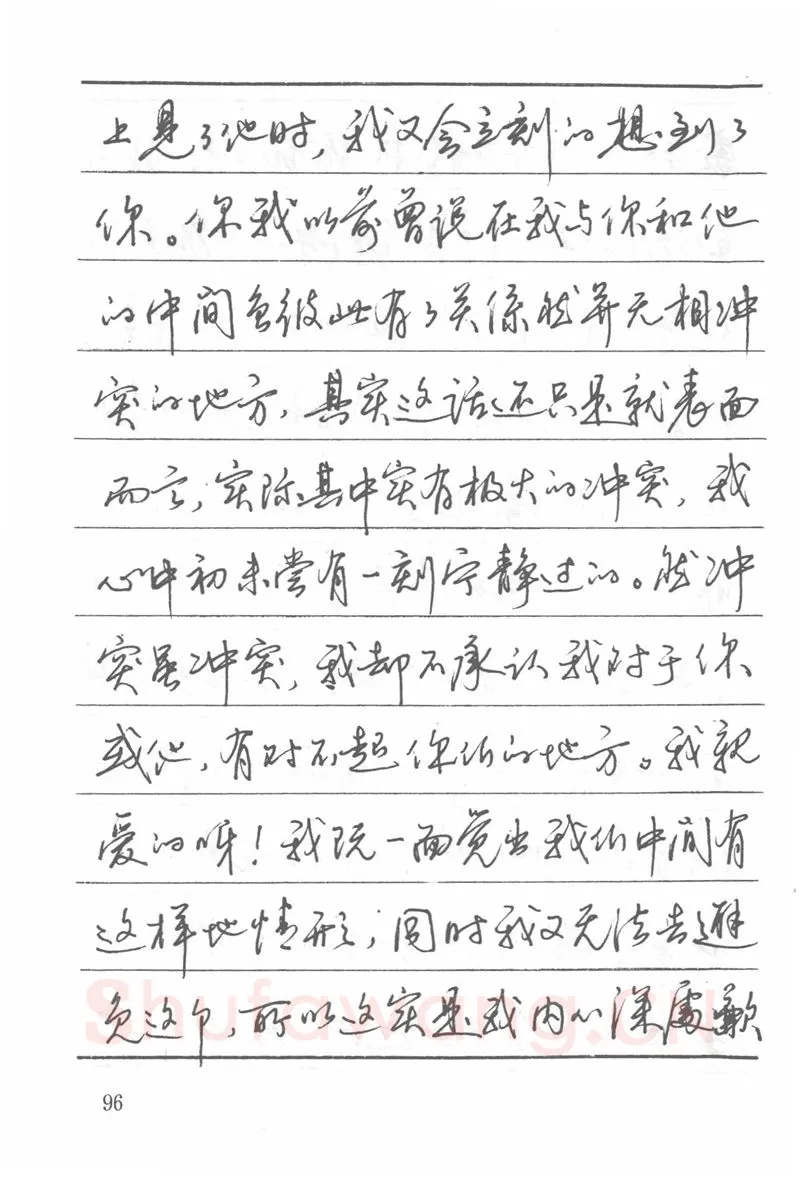 上是了他时，我又会立刻的想到了
你。你我以前曾说在我与你和他
的中间虽彼此有了关系然并无相冲
突的地方，其实这话还只是就表面
而言，实际其中实有极大的冲突，我
心中初未尝有一刻宁静过的。然冲
突虽冲突，我却不承认我对于你
或他，有对不起你们的地方。我亲
爱的呀！我既一面觉出我们中间有
这样地情形，同时我又无法去避
免这个，所以这实是我内心深处
Shufawang.cn
96